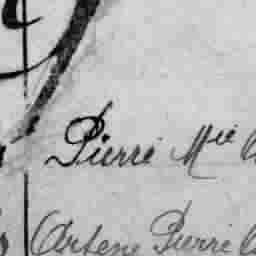 Pierre Mie
Arsene Pierre